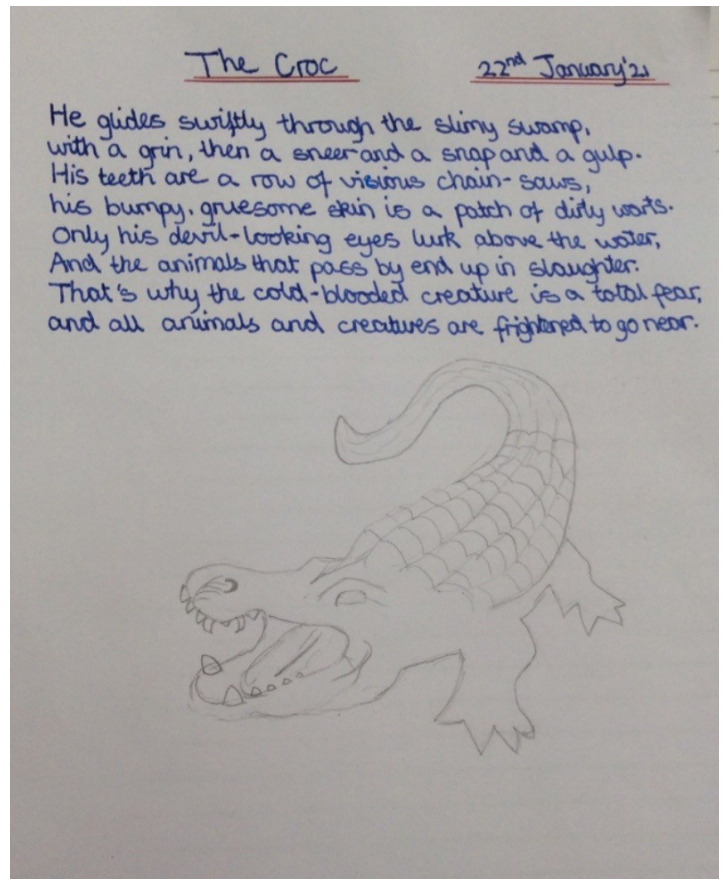 The Croc
22nd January'21
He glides swiftly through the slimy swamp,
with a grin, then a sneer and a snap and a gulp.
His teeth are a row of visious chain-saws,
his bumpy, gruesome skin is a patch of dirty warts.
Only his devil-looking eyes lurk above the water,
And the animals that pass by end up in slaughter.
That's why the cold-blooded creature is a total fear,
and all animals and creatures are frightened to go near.